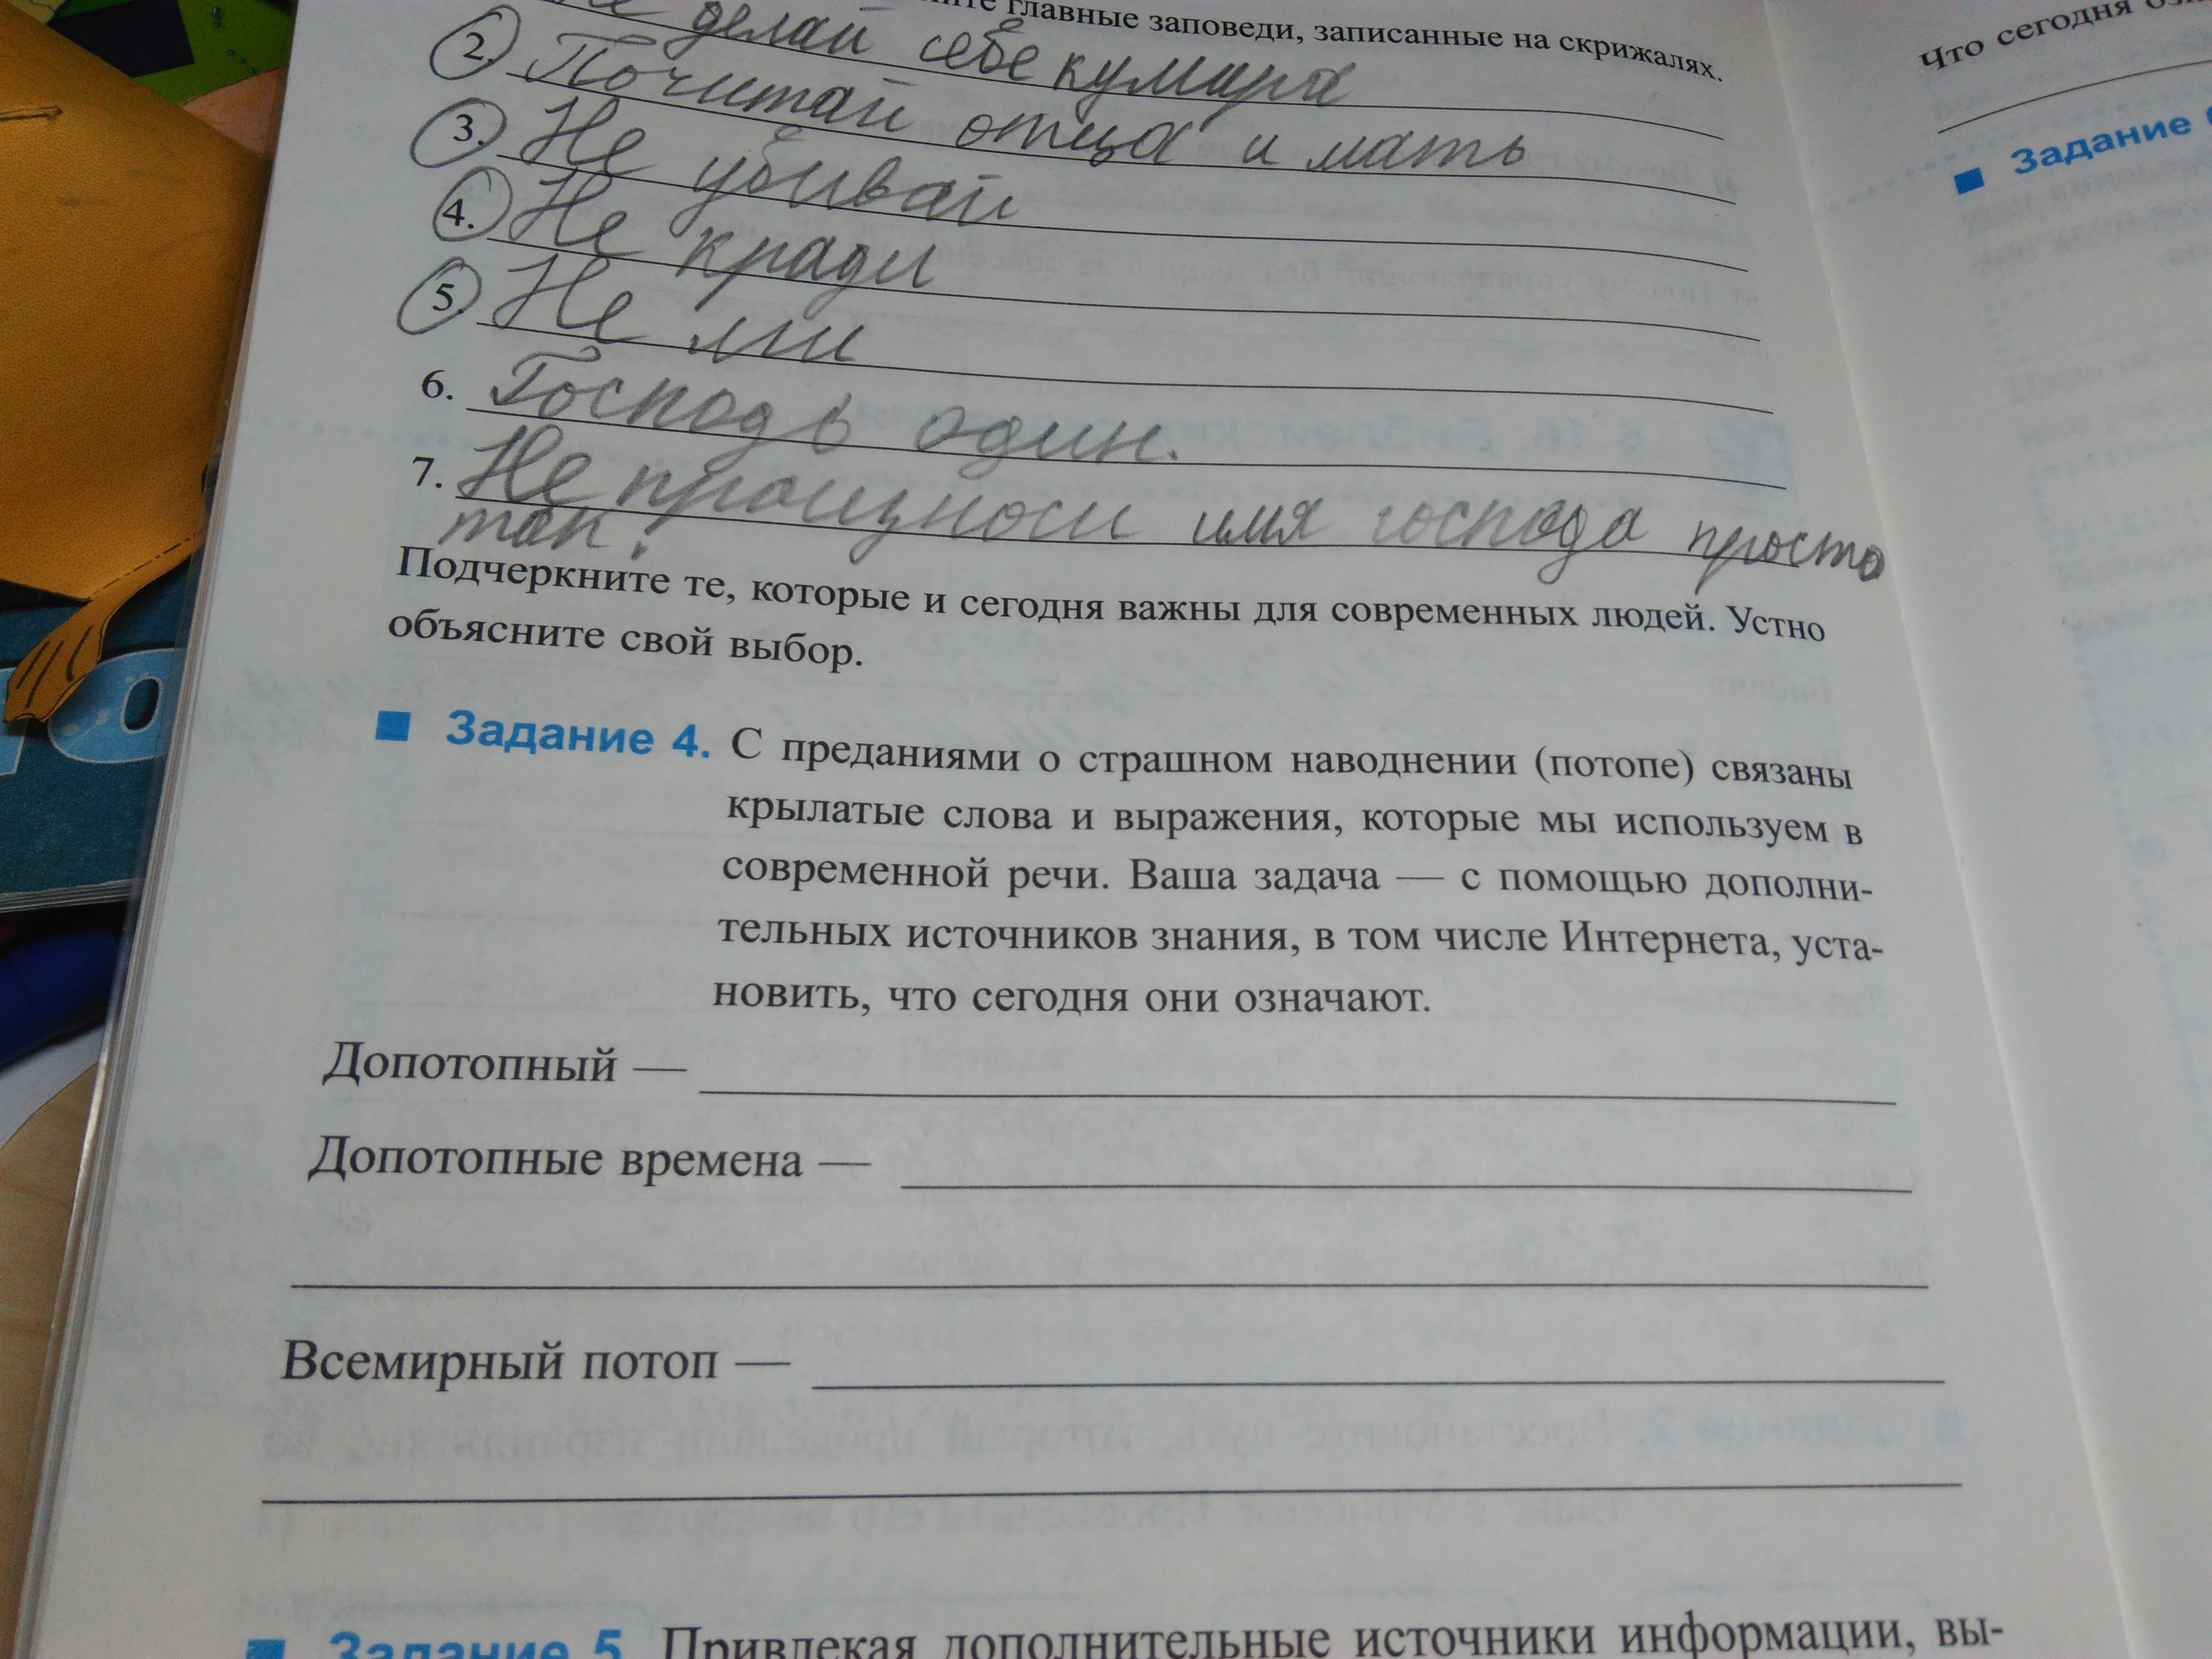 главные заповеди, записанные на скрижалях.
Не делай себе кумира
2. Почитай отца и мать
3. Не убивай
4. Не кради
5. Не лги
6. Господь один.
7. Не произноси имя господа просто
так.
Подчеркните те, которые и сегодня важны для современных людей. Устно
объясните свой выбор.
Задание 4. С преданиями о страшном наводнении (потопе) связаны
крылатые слова и выражения, которые мы используем в
современной речи. Ваша задача — с помощью дополни-
тельных источников знания, в том числе Интернета, уста-
новить, что сегодня они означают.
Допотопный —
Допотопные времена —
Всемирный потоп —
Задание 5. Привлекая дополнительные источники информации, вы-
Что сегодня
Задание